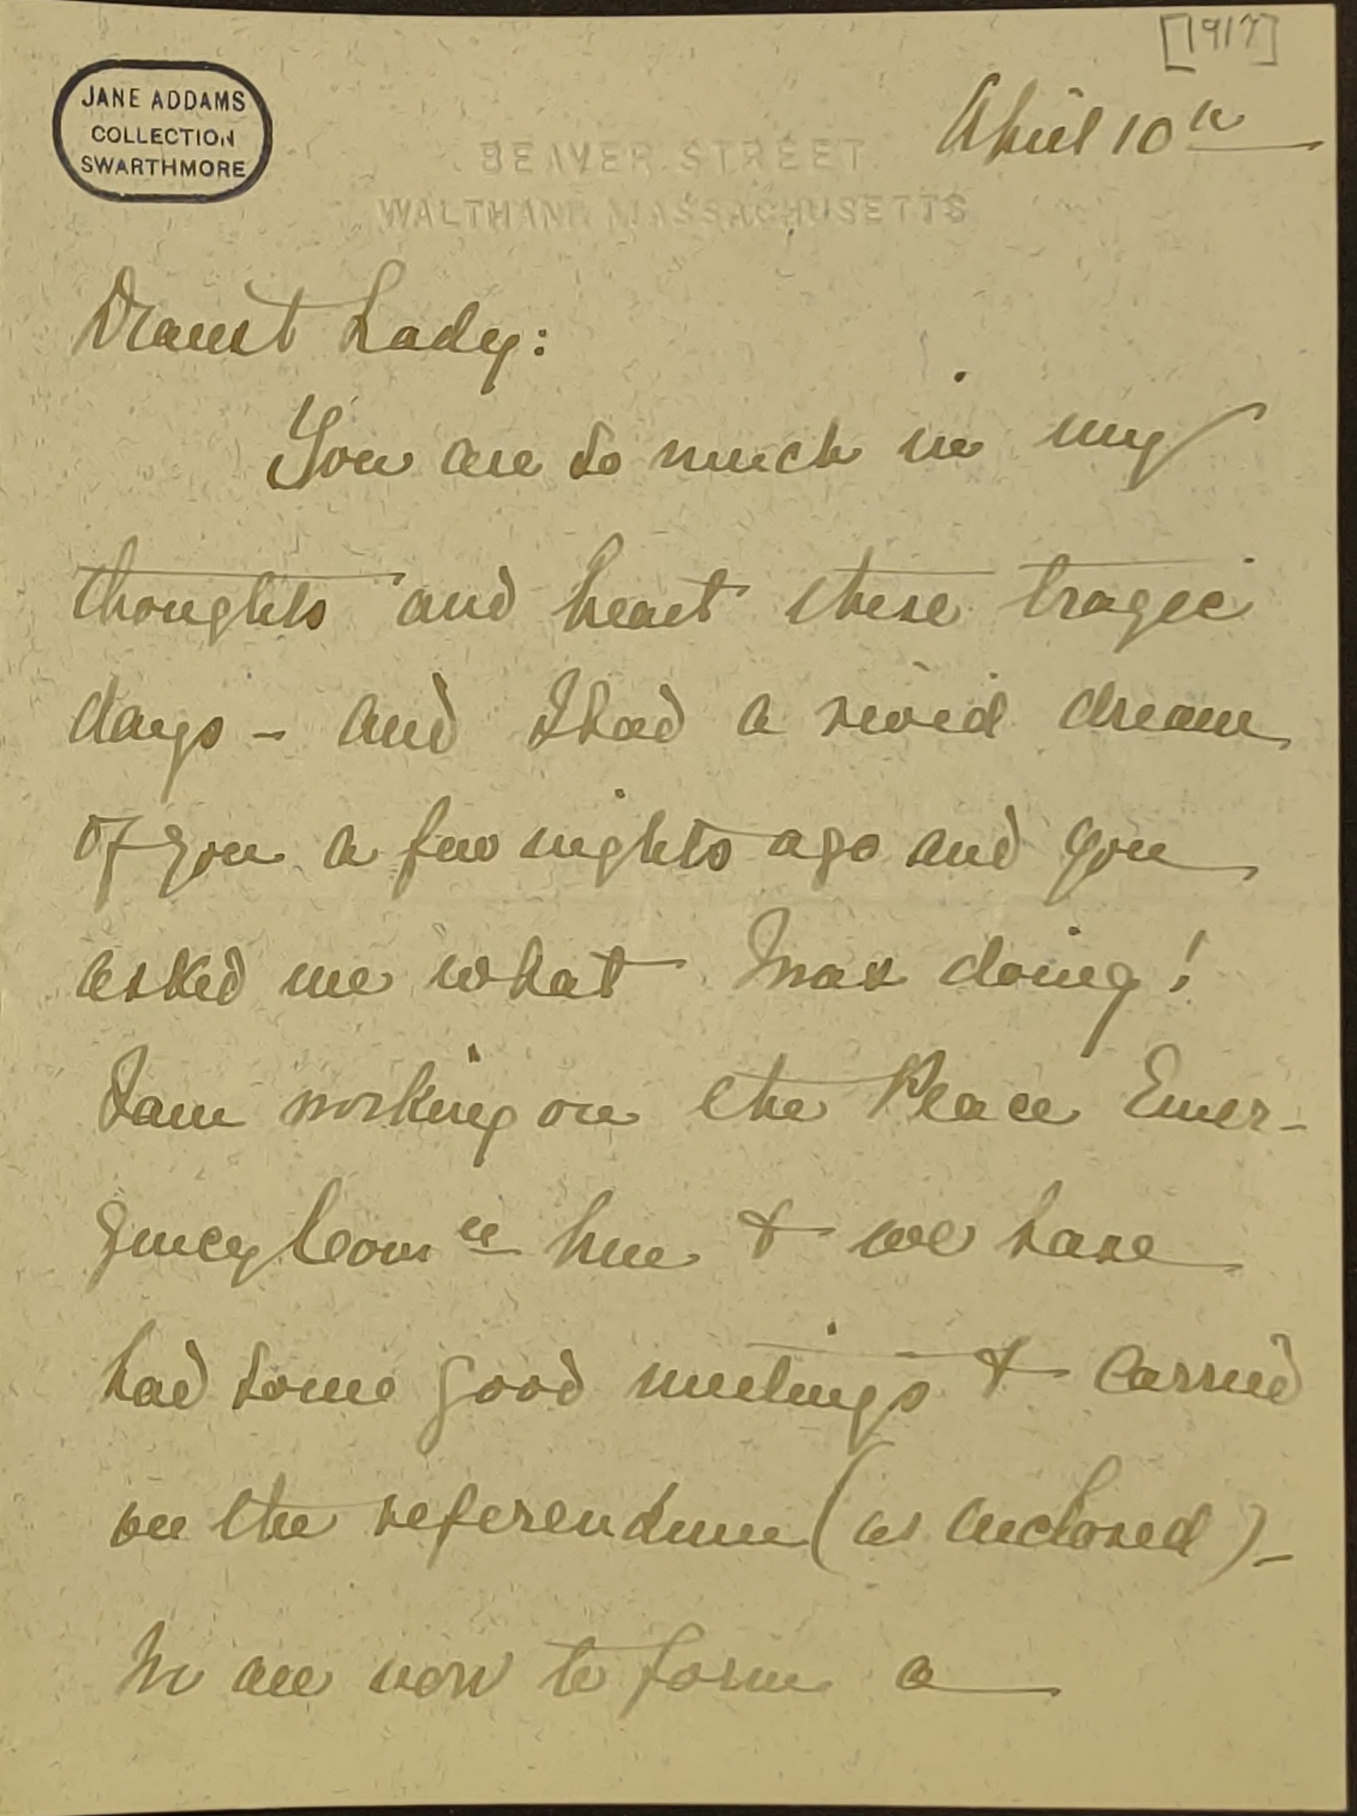 [1917]
JANE ADDAMS
COLLECTION
SWARTHMORE
April 10th
BEAVER STREET
WALTHAM MASSACHUSETTS
Dearest Lady:
You are so much in my
thoughts and heart these tragic
days - and I had a vivid dream
of you a few nights ago and you
asked me what I was doing!
I am working on the Peace Emer-
gency Com ee here & we have
had some good meetings & carried
on the referendum (as enclosed) -
We are now to form a